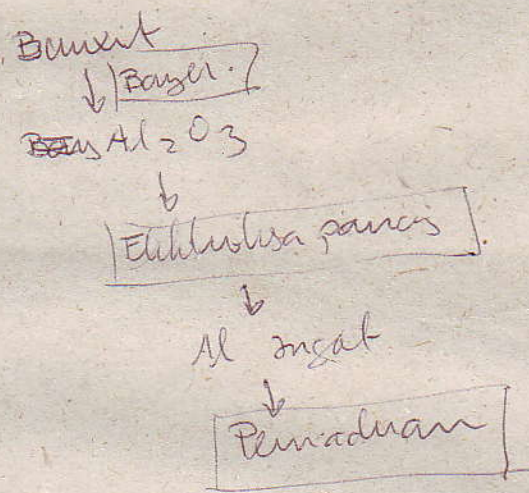 Bauxit
Bayer.
Al₂O₃
Elektrolisa panas
Al ingat
Pemaduan